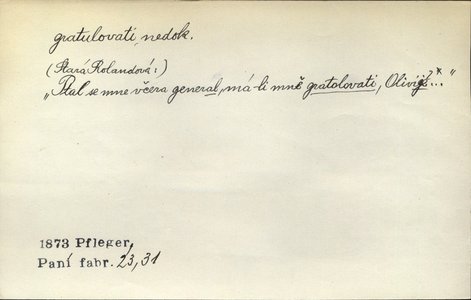 gratulovati, nedok.
(Stará Rolandová:)
„Ptal se mne včera general, má-li mně gratolovati, Olivii?..."
1873 Pfleger,
Paní fabr. 23,31